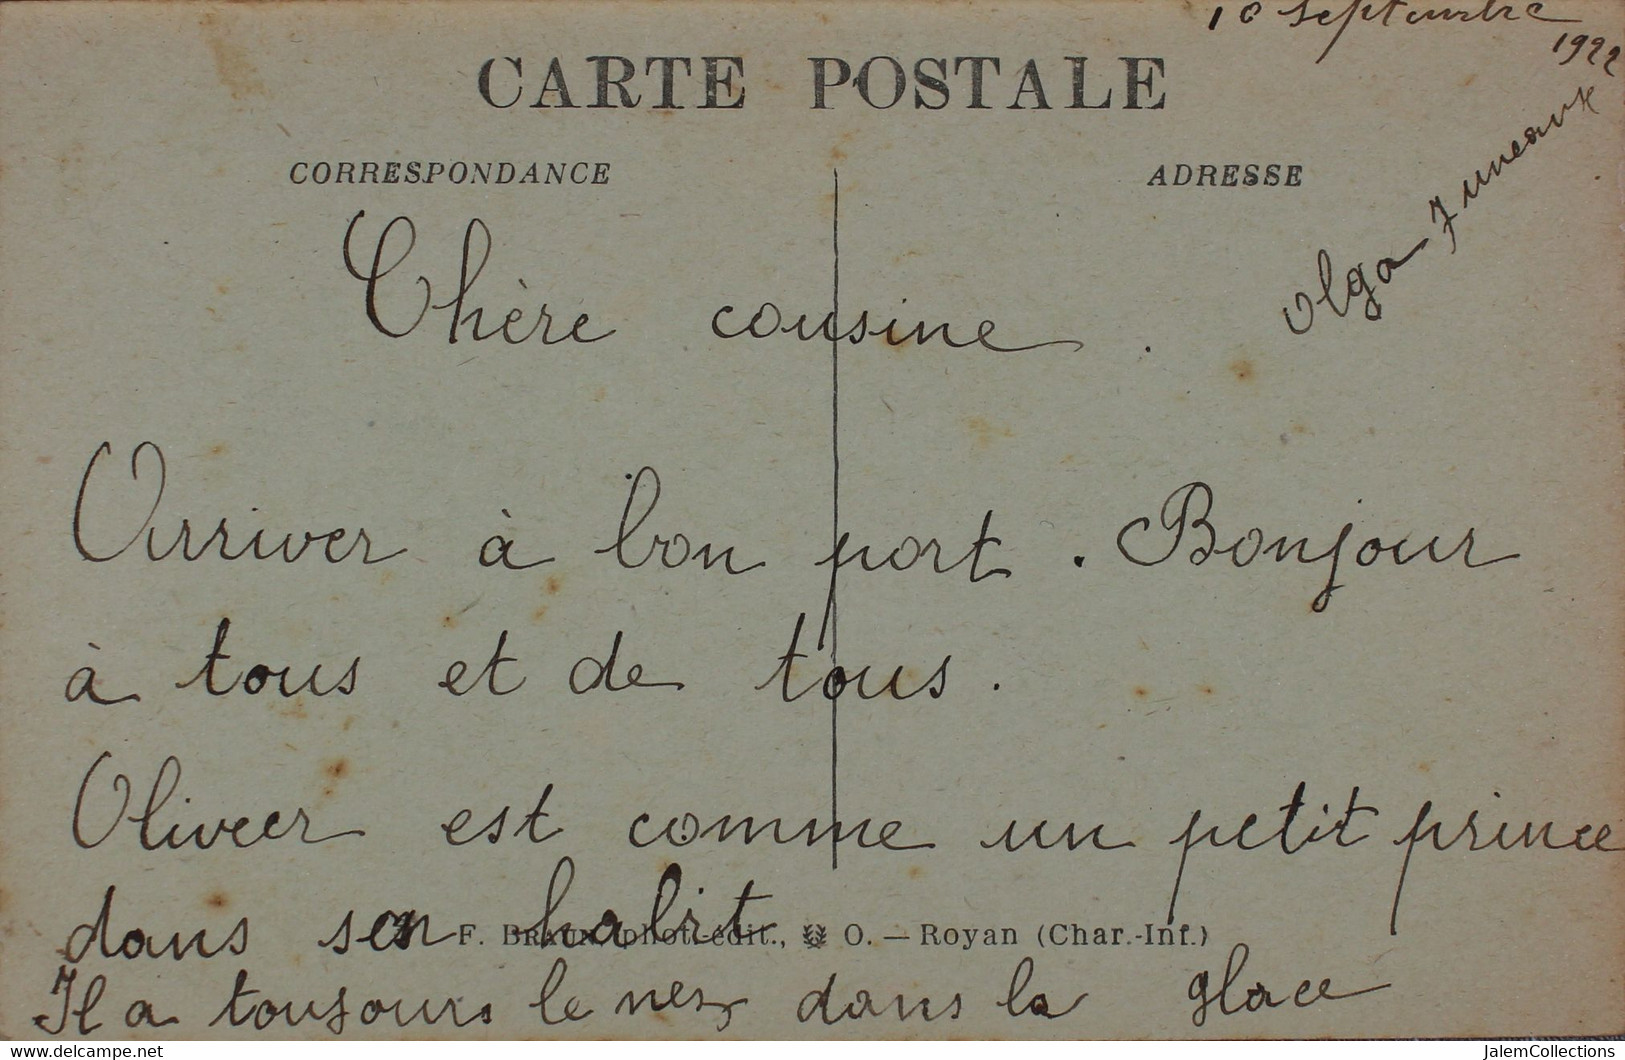 10 Septembre
1922
CARTE POSTALE
CORRESPONDANCE
ADRESSE
Olga
Chère cousine.
Arriver à bon port. Bonjour
à tous et de tous.
Oliveer est comme un petit prince
dans son habit
F. BRAUN, phot.-édit., O. — Royan (Char.-Inf.)
Il a toujours le nez dans la glace
delcampe.net
JalemCollections